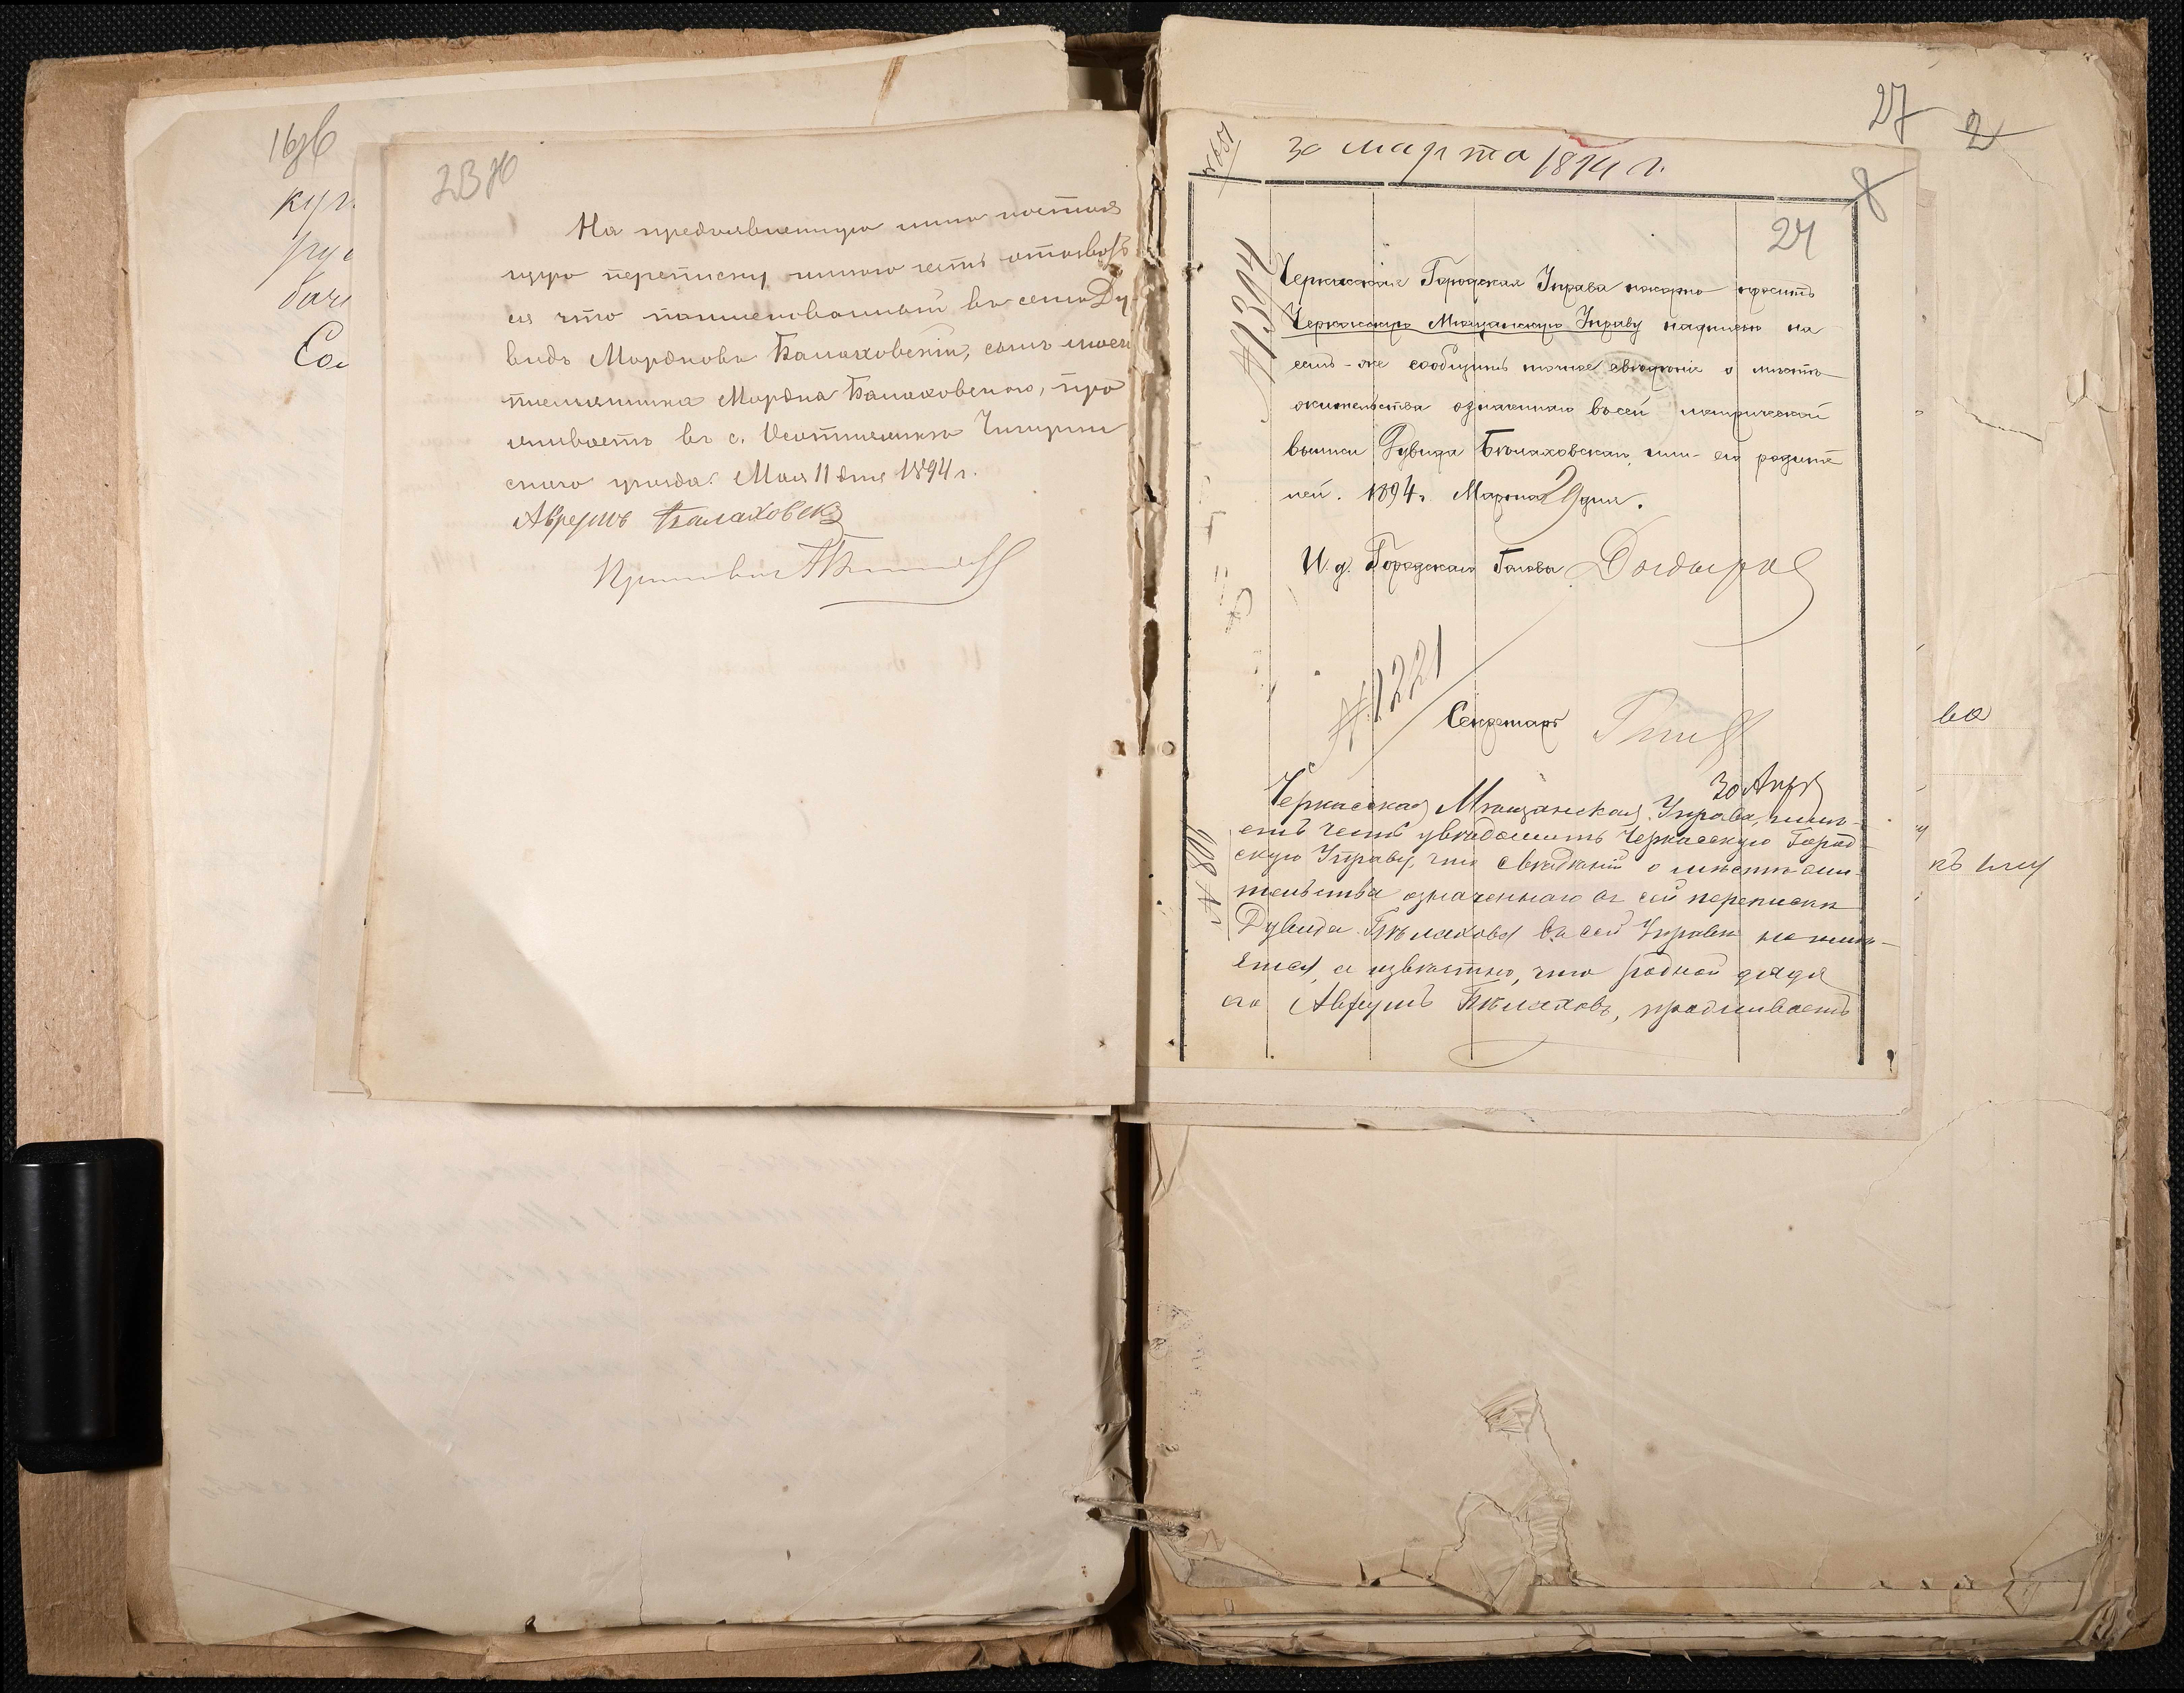 16об
23об
На предъявленную мнѣ настоя
щую переписку имѣю честь отозвать
ся что поименованный въ семъ Ду
видъ Мордковъ Балаховскій, сынъ моего
племянника Мордка Балаховскаго, про
живаетъ въ с. Чигирин
скаго уѣзда. Мая 11 дня 1894 г.
Аврумъ Балаховскі
27
2
30 марта 1894 г.
8
24
№1304
Черкасская Городская Управа покорно проситъ
Черкасскую Мѣщанскую Управу надписью на
семъ-же сообщить точное свѣдѣніе о мѣсто-
жительствѣ означеннаго въ сей метрической
выписи Дувида Бѣлаховскаго, или его родите
лей. 1894 г. Марта 29 дня.
И. д. Городскаго Головы
№1221
Секретарь
30 Апр
Черкасская Мѣщанская Управа, имѣ-
етъ честь увѣдомить Черкасскую Город
скую Управу, что свѣдѣній о мѣстѣ жи-
тельства означеннаго въ сей перепискѣ
Дувида Бѣлахова въ сей Управѣ не имѣ-
ется, а извѣстно, что родной дядя
его Аврумъ Бѣлаховъ, проживаетъ
№ 808
ва
къ ему